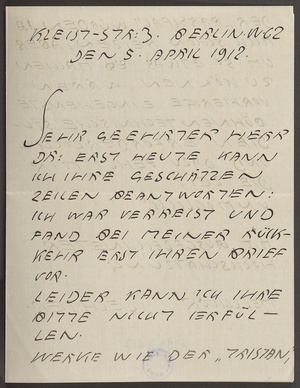 KLEIST-STR: 3. BERLIN. W62
DEN 5. APRIL 1912.
SEHR GEEHRTER HERR
DR: ERST HEUTE KANN
ICH IHRE GESCHÄTZEN
ZEILEN BEANTWORTEN:
ICH WAR VERREIST UND
FAND BEI MEINER RÜCK-
KEHR ERST IHREN BRIEF
VOR.
LEIDER KANN ICH IHRE
BITTE NICHT ERFÜL-
LEN.
WERKE WIE DER „TRISTAN,